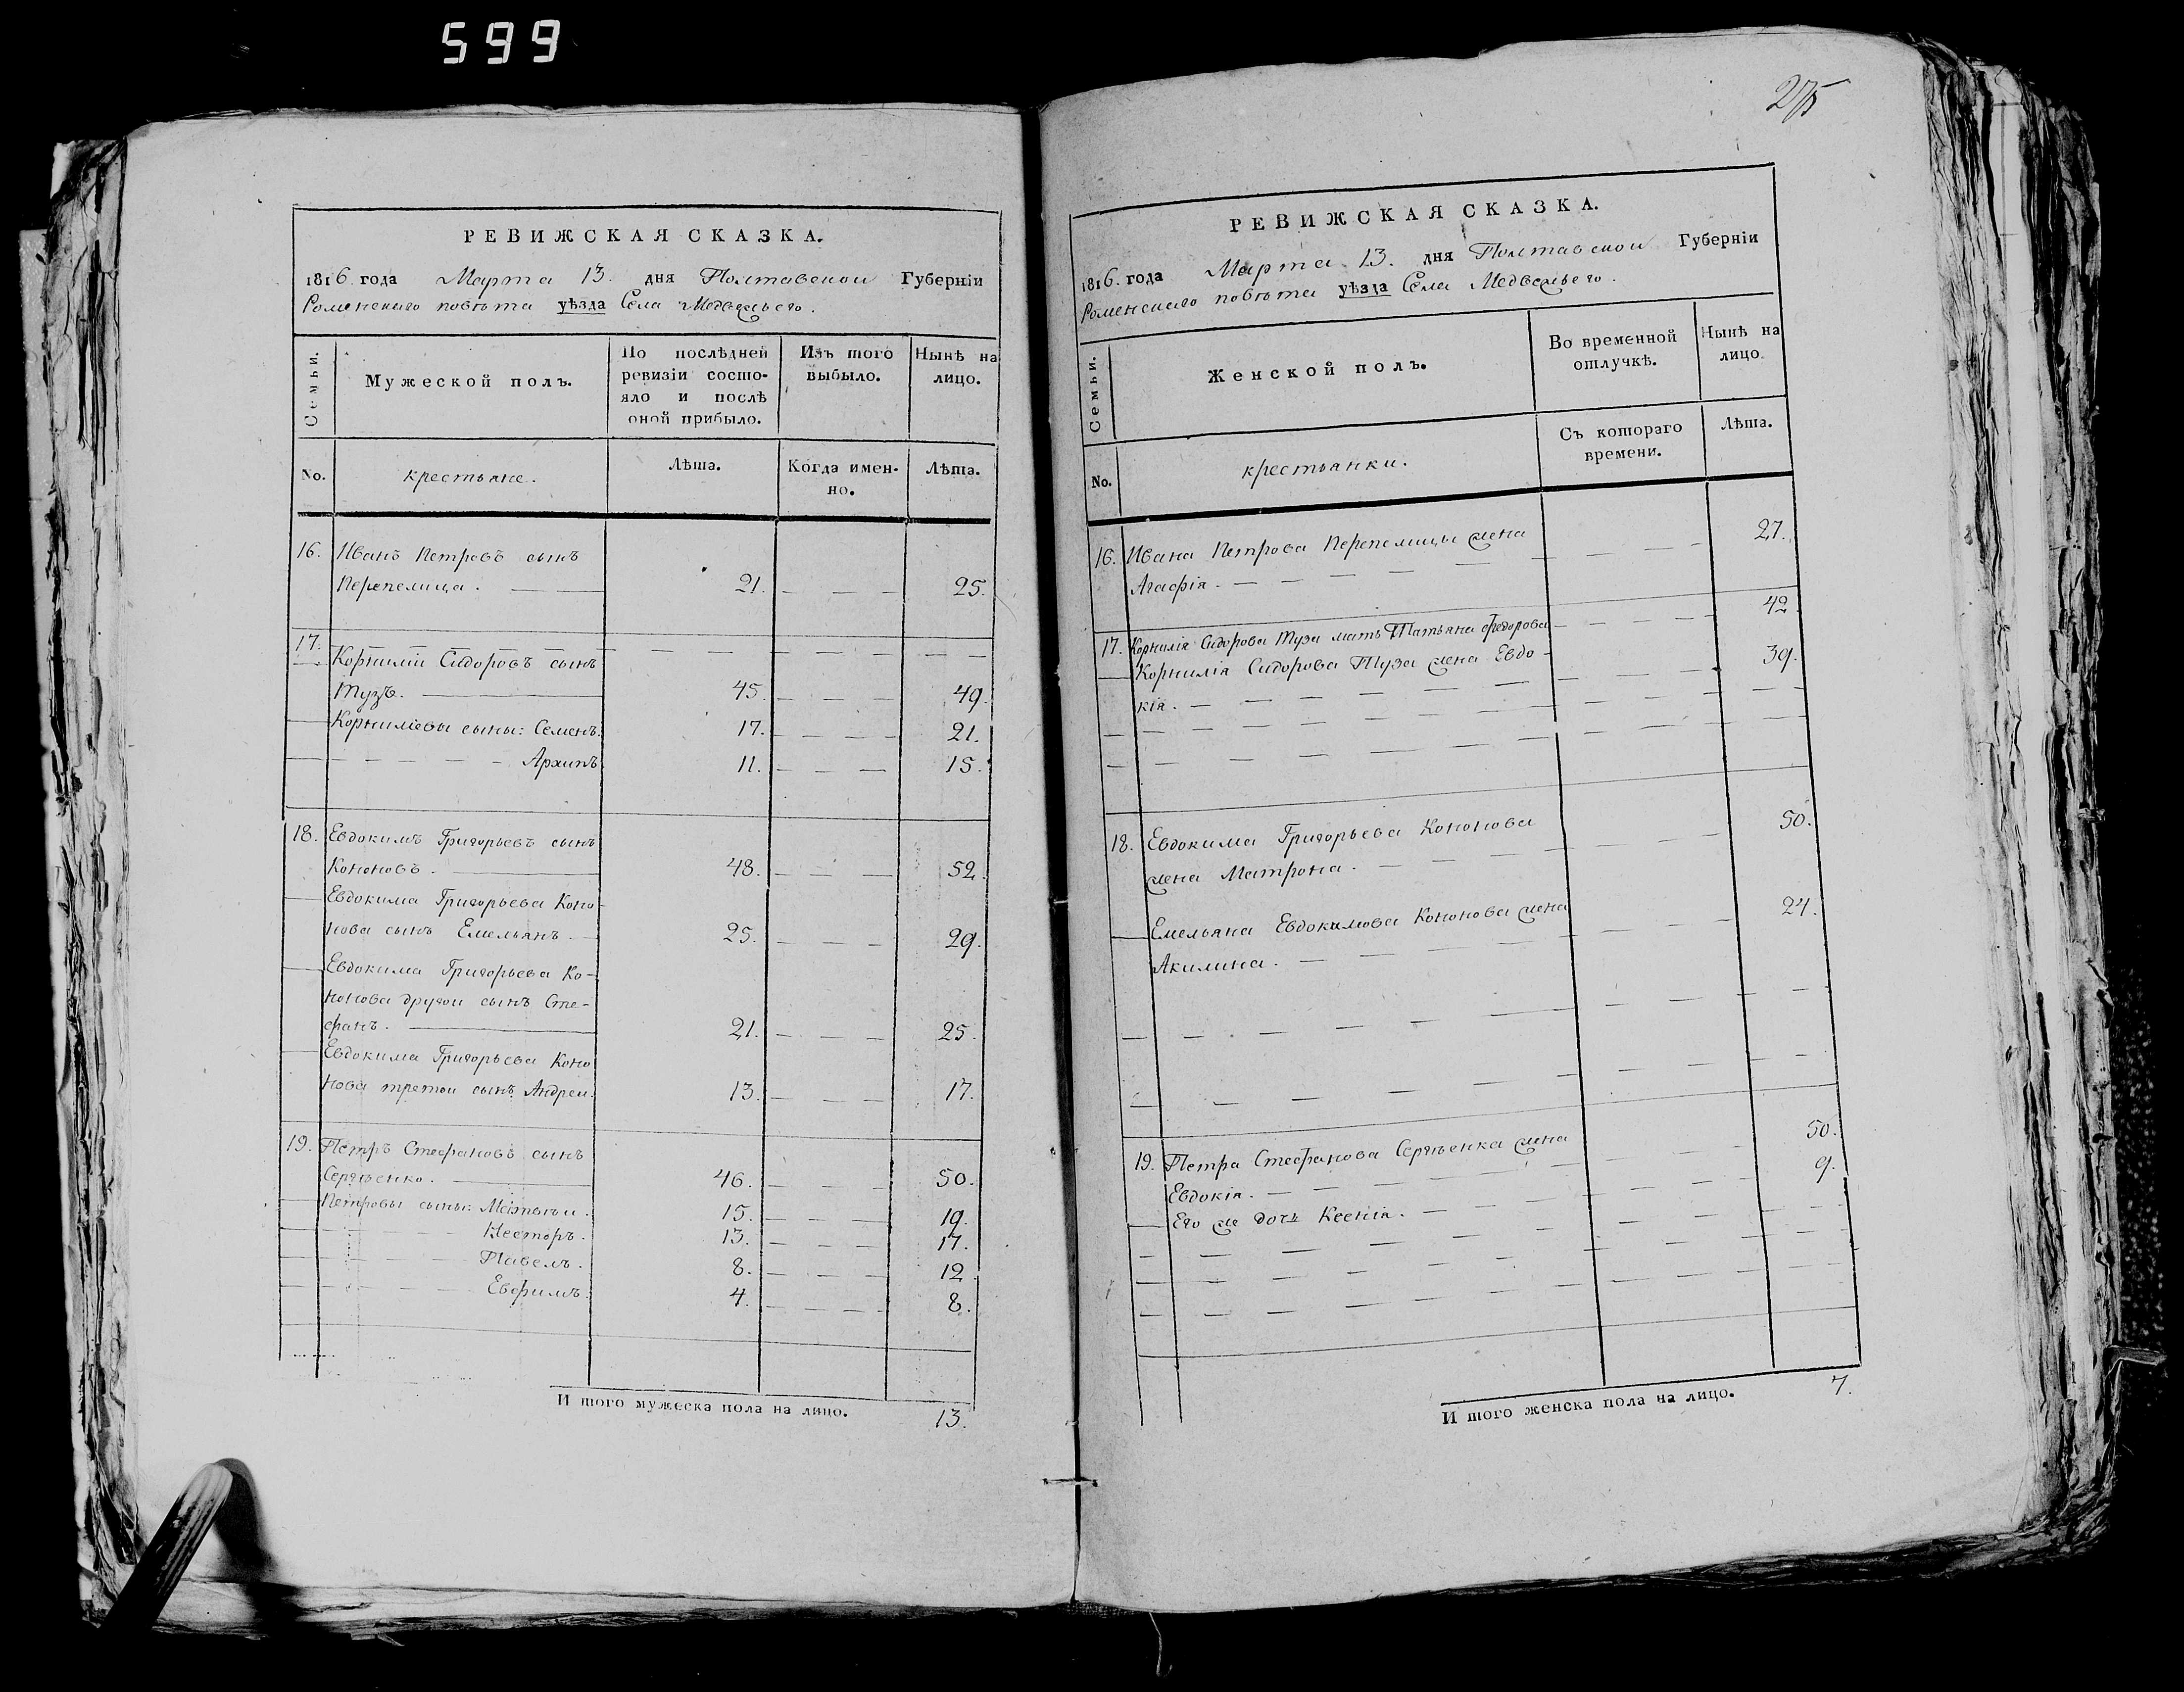 599
РЕВИЖСКАЯ СКАЗКА.
1816. года Марта 13. дня Полтавской Губерніи
Роменскаго повѣта уѣзда Села Медвежьего.
Семьи.
Мужеской полъ.
По послѣдней
ревизіи состо-
яло и послѣ
оной прибыло.
Изъ того
выбыло.
Нынѣ на
лицо.
No.
крестьяне.
Лѣта.
Когда имен-
но.
Лѣта.
16. Иванъ Петровъ сынъ
Перепелица. 21. 25.
17. Корнилій Сидоровъ сынъ
Тузъ. 45. 49.
Корниліевы сыны: Семенъ. 17. 21.
Архипъ 11. 15.
18. Евдокимъ Григорьевъ сынъ
Кононовъ. 48. 52.
Евдокима Григорьева Коно-
нова сынъ Емельянъ 25. 29.
Евдокима Григорьева Ко-
нонова другой сынъ Сте-
фанъ. 21. 25.
Евдокима Григорьева Коно
нова третой сынъ Андрей. 13. 17.
19. Петръ Стефановъ сынъ
46. 50.
Петровы сыны: 15. 19.
Несторъ. 13. 17.
Павелъ. 8. 12.
Евфимъ. 4. 8.
И того мужеска пола на лицо. 13.
275
РЕВИЖСКАЯ СКАЗКА.
1816. года Марта 13. дня Полтавской Губерніи
Роменскаго повѣта уѣзда Села Медвежьего.
Семьи.
Женской полъ.
Во временной
отлучкѣ.
Нынѣ на
лицо.
No.
крестьянки.
Съ котораго
времени.
Лѣта.
16. Ивана Петрова Перепелицы жена 27.
Агафія.
17. Корнилія Сидорова Туза мать Татьяна Федорова 42.
Корнилія Сидорова Туза жена Евдо- 39.
кія.
18. Евдокима Григорьева Кононова 50.
жена Матрона.
Емельяна Евдокимова Кононова жена 24.
Акилина.
19. Петра Стефанова жена 50.
Евдокія. 9.
Его же дочь Ксенія.
И того женска пола на лицо. 7.